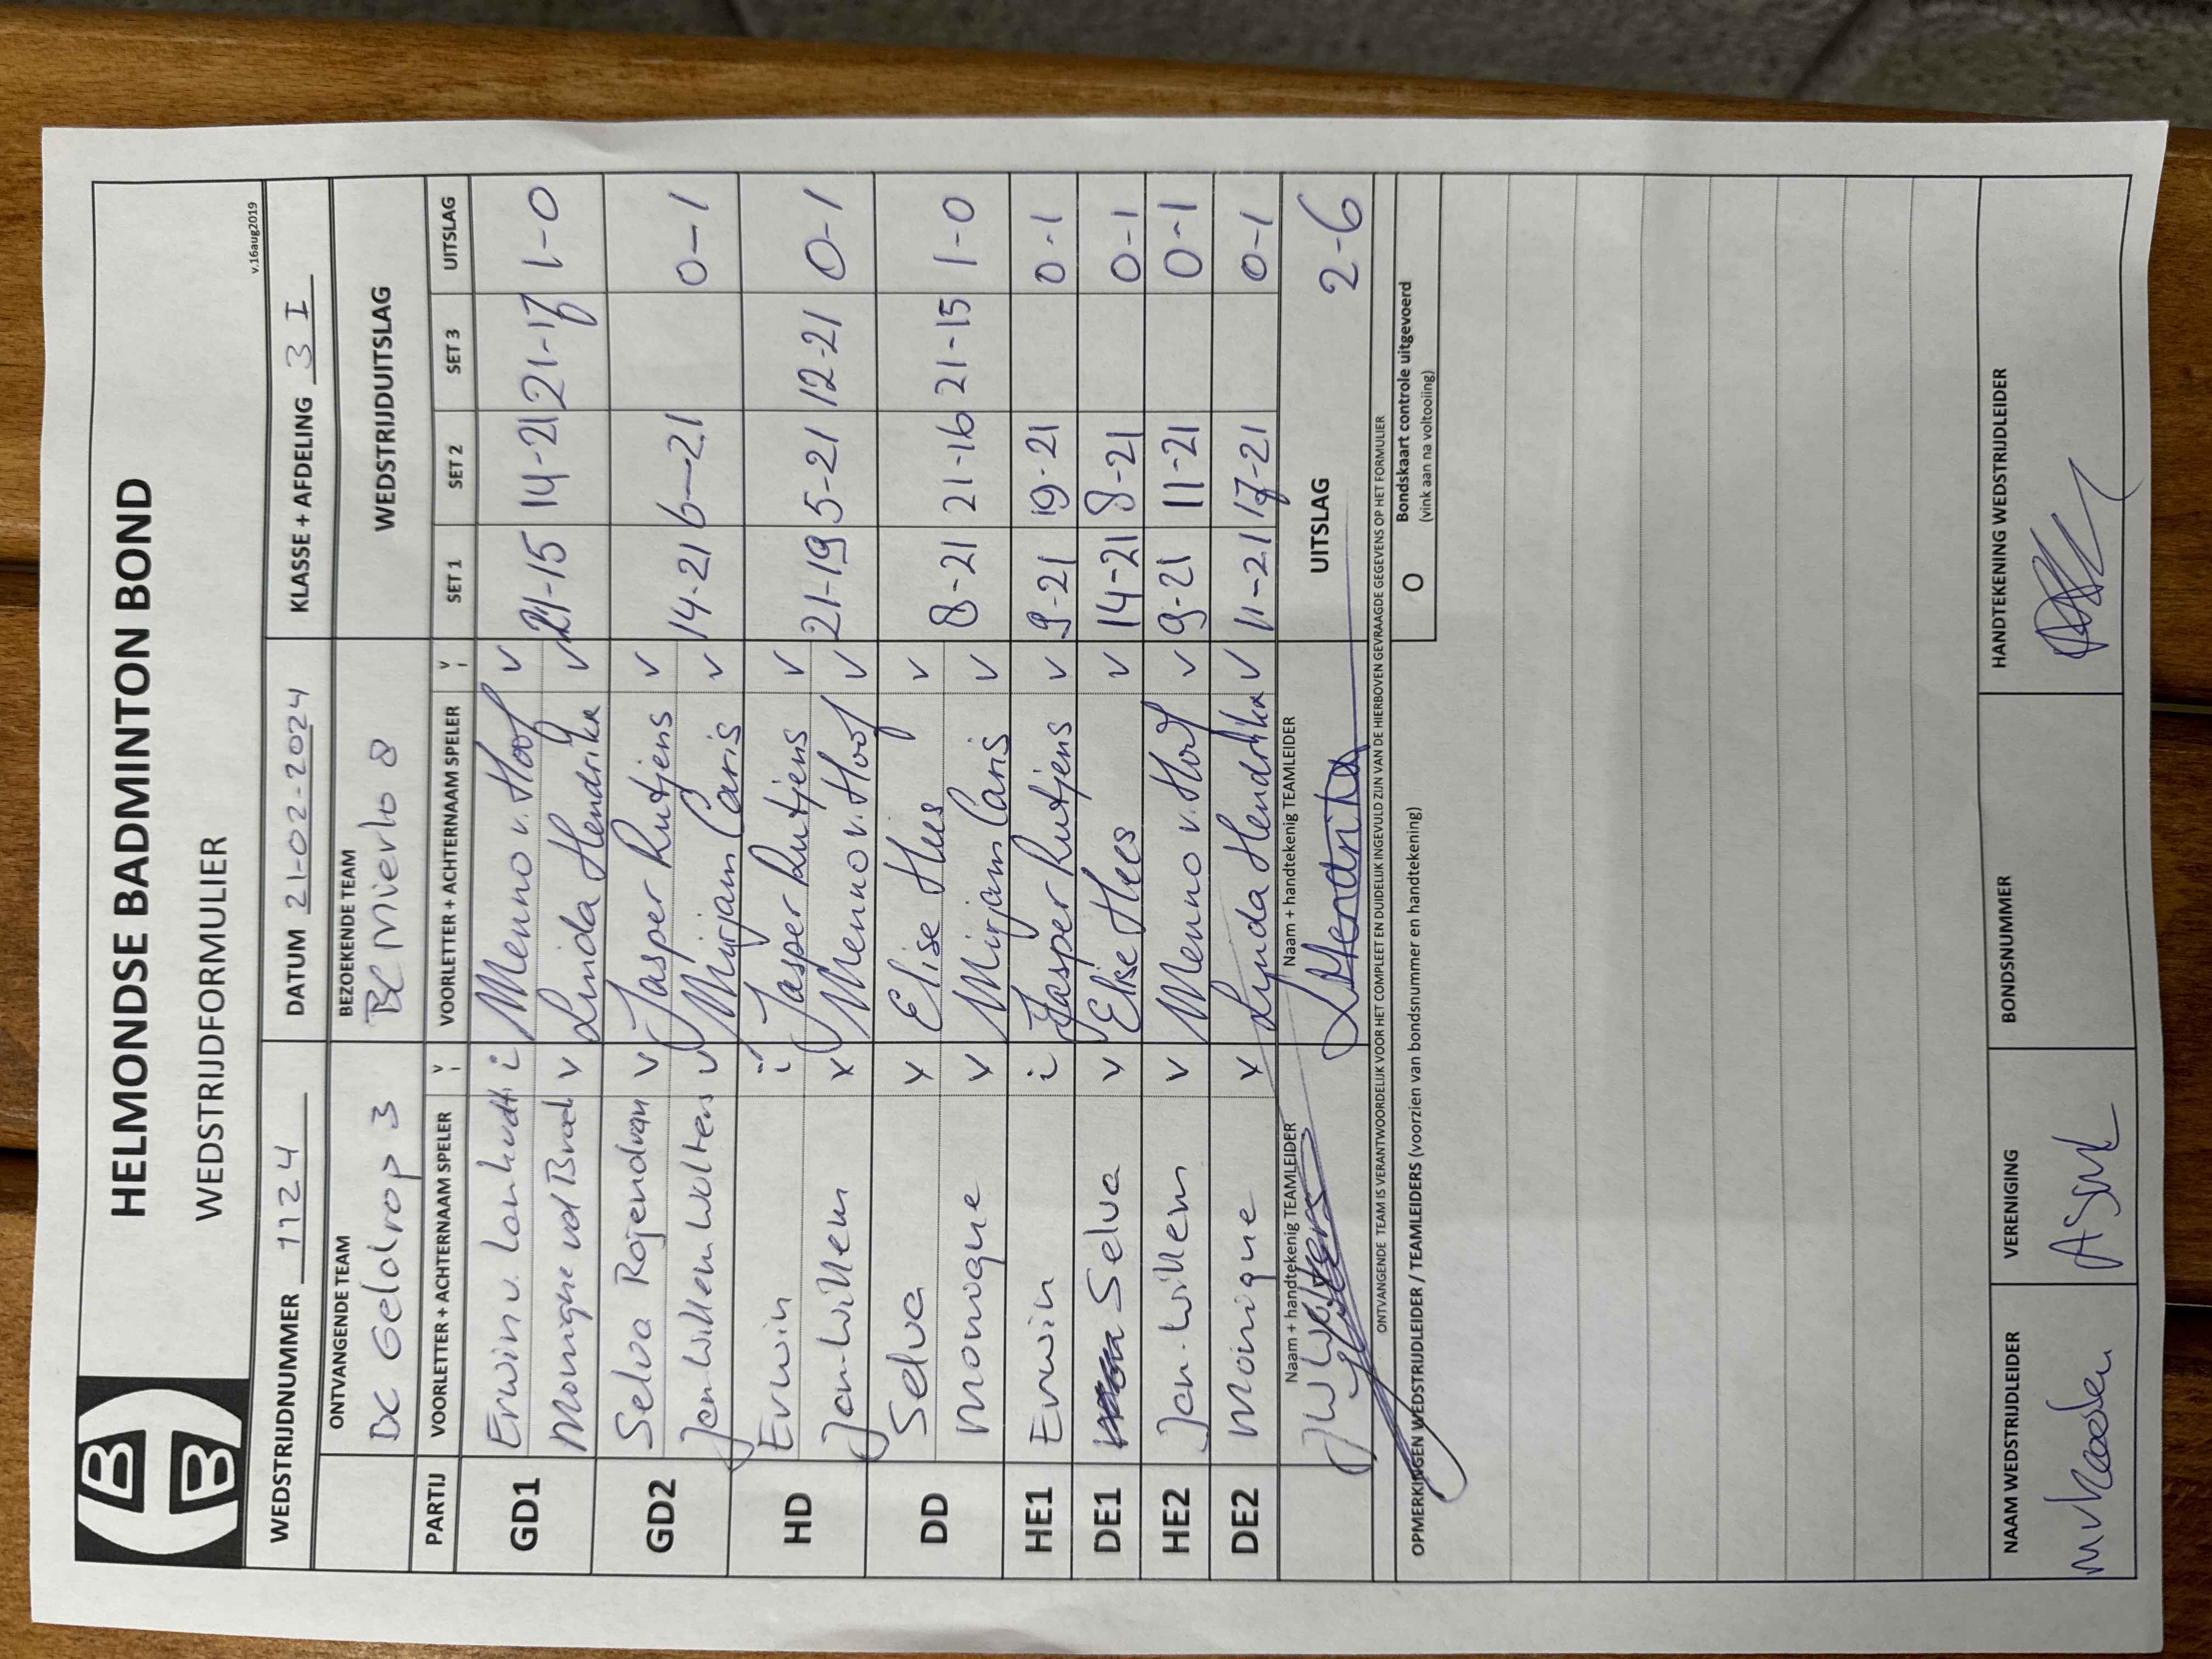 HELMONDSE BADMINTON BOND
WEDSTRIJDFORMULIER
v.16aug2019
WEDSTRIJDNUMMER 1124 DATUM 21-02-2024 KLASSE + AFDELING 3 I
ONTVANGENDE TEAM BEZOEKENDE TEAM WEDSTRIJDUITSLAG
BC Geldrop 3 BC Mierlo 8
PARTIJ VOORLETTER + ACHTERNAAM SPELER V i VOORLETTER + ACHTERNAAM SPELER V i SET 1 SET 2 SET 3 UITSLAG
GD1 Erwin v. i Menno v. Hoof v
Monique v Linda Hendrikx v 21-15 14-21 21-17 1-0
GD2 Selva Rajendran v Jasper Rutjens v
Jan-Willem Wolters v Mirjam Caris v 14-21 6-21 0-1
HD Erwin i Jasper Rutjens v
Jan-Willem v Menno v. Hoof v 21-19 5-21 12-21 0-1
DD Selva v Elise Hees v
Monique v Mirjam Caris v 8-21 21-16 21-15 1-0
HE1 Erwin i Jasper Rutjens v 9-21 19-21 0-1
DE1 Selva v Elise Hees v 14-21 8-21 0-1
HE2 Jan-Willem v Menno v. Hoof v 9-21 11-21 0-1
DE2 Monique v Lynda Hendrikx v 11-21 17-21 0-1
Naam + handtekenig TEAMLEIDER Naam + handtekenig TEAMLEIDER UITSLAG 2-6
JW Wolters LHendrikx
ONTVANGENDE TEAM IS VERANTWOORDELIJK VOOR HET COMPLEET EN DUIDELIJK INGEVULD ZIJN VAN DE HIERBOVEN GEVRAAGDE GEGEVENS OP HET FORMULIER
OPMERKINGEN WEDSTRIJDLEIDER / TEAMLEIDERS (voorzien van bondsnummer en handtekening) O Bondskaart controle uitgevoerd
(vink aan na voltooiing)
NAAM WEDSTRIJDLEIDER VERENIGING BONDSNUMMER HANDTEKENING WEDSTRIJDLEIDER